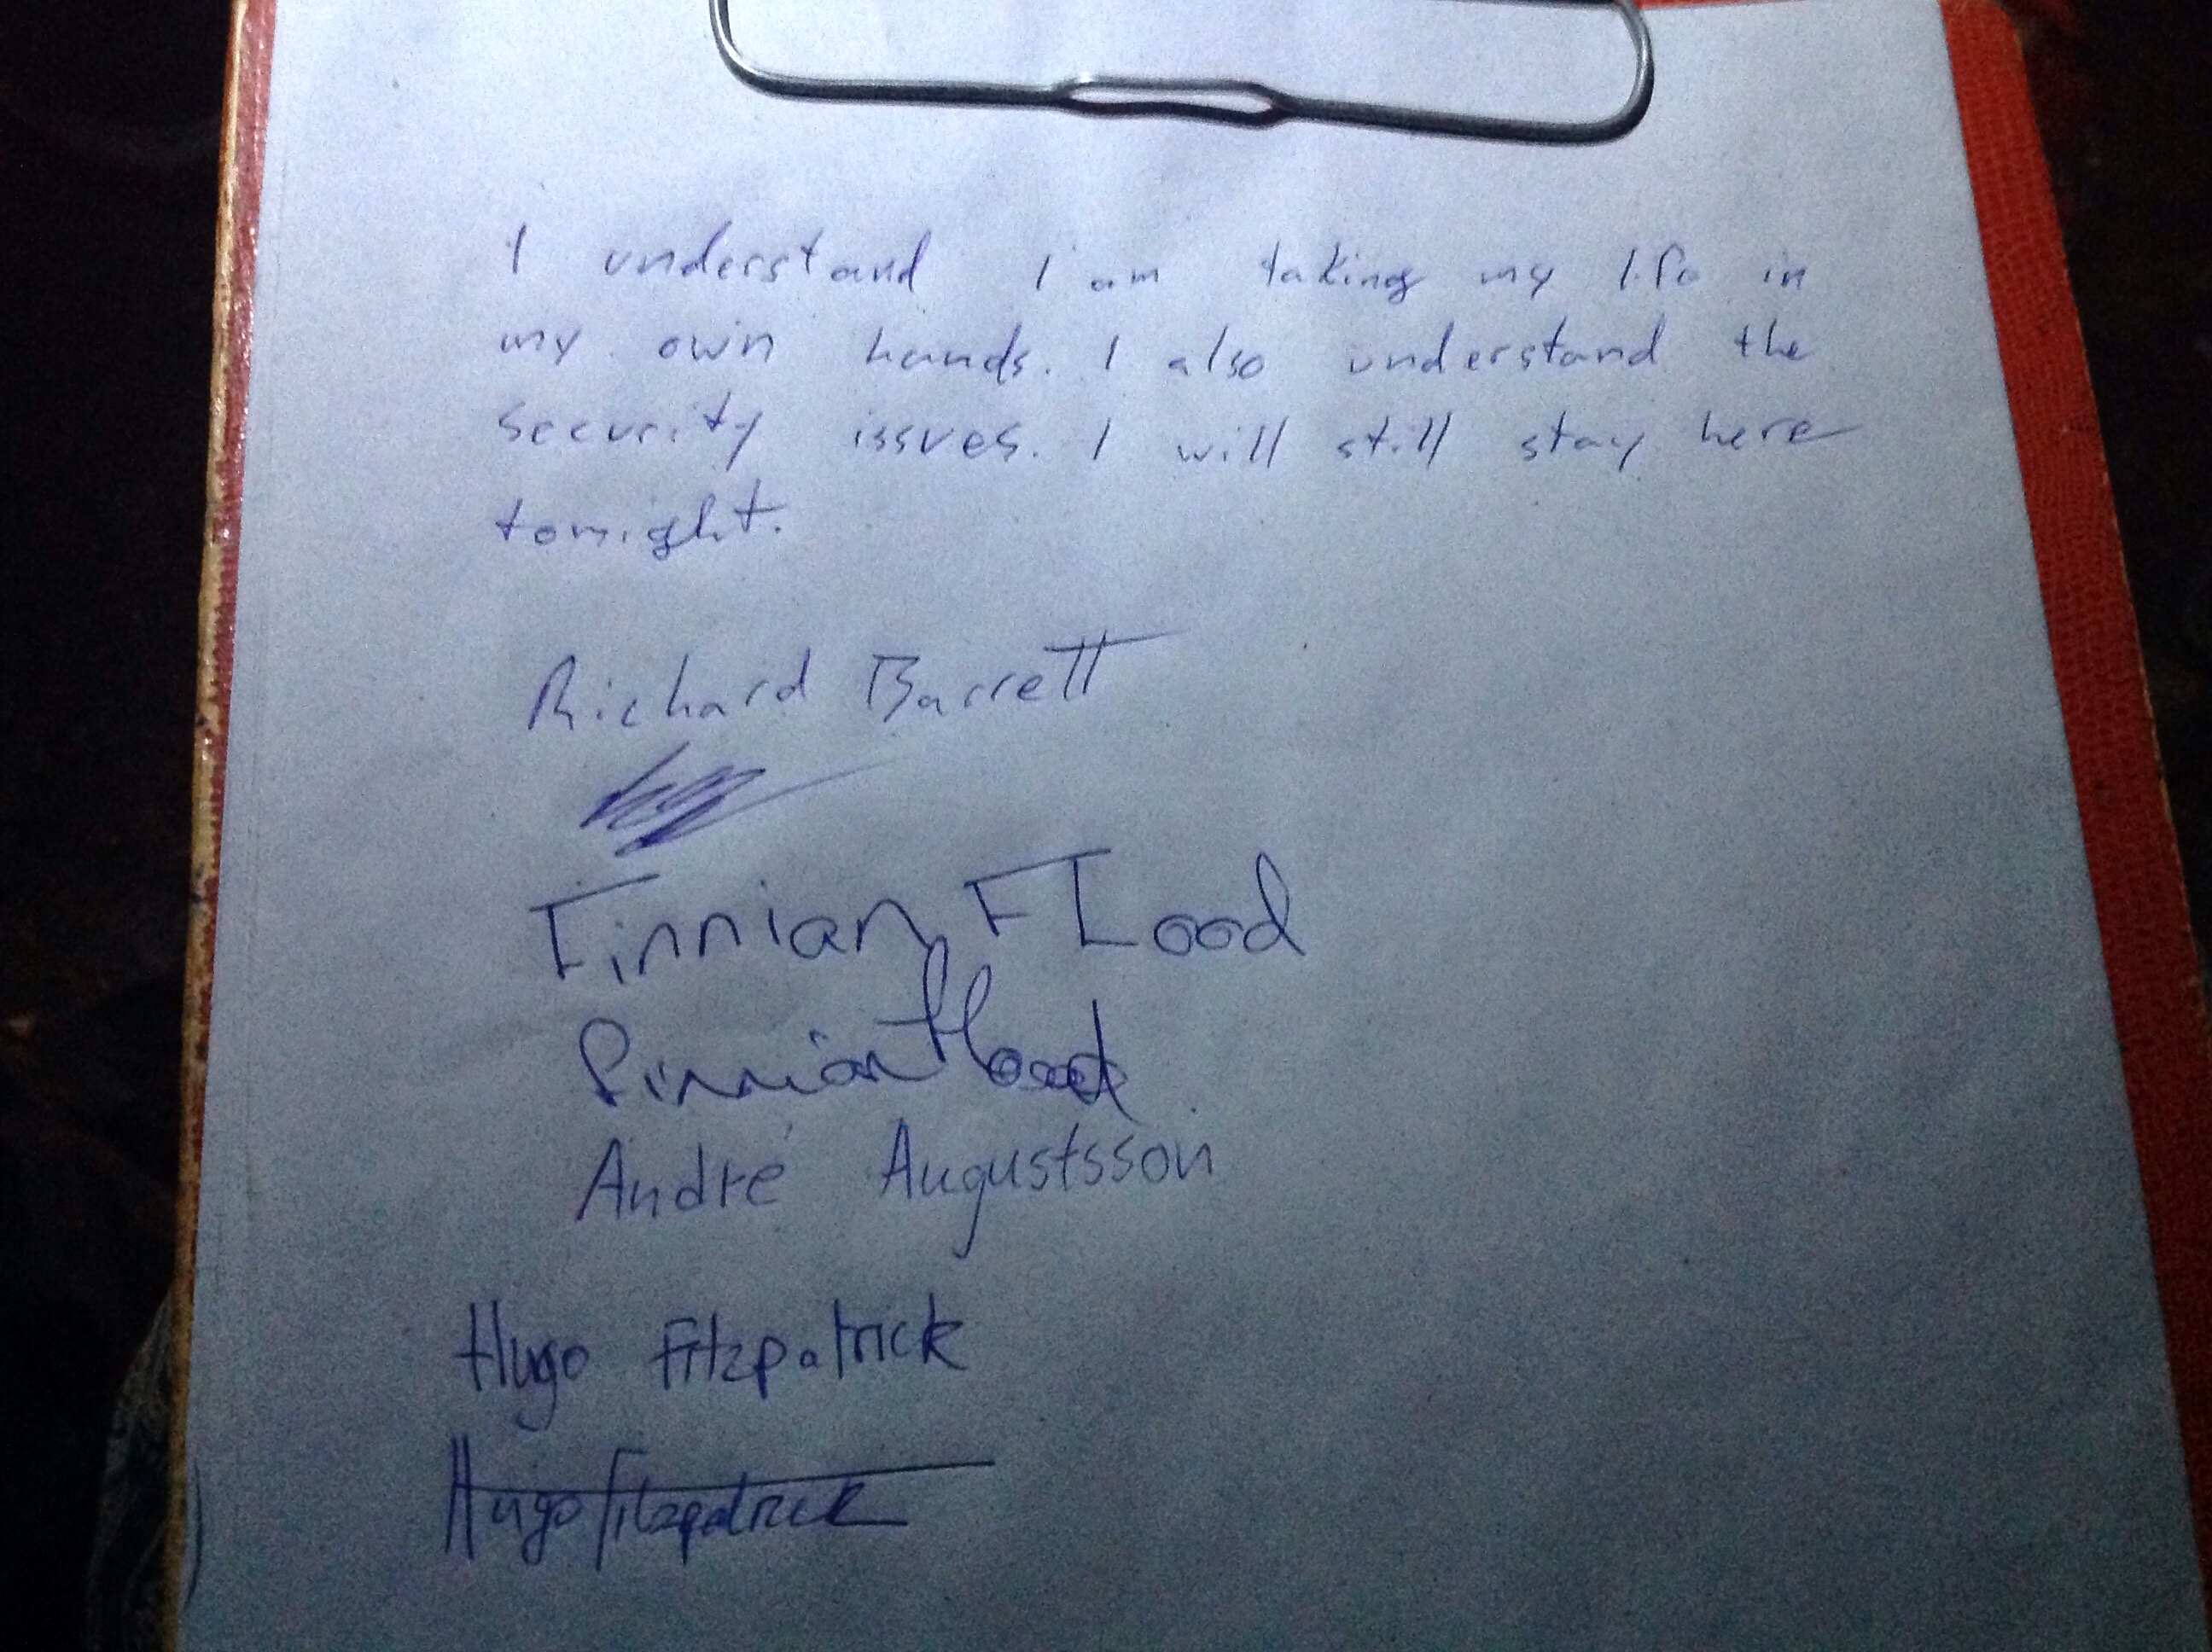 I understand I am taking my life in
my own hands. I also understand the
security issues. I will still stay here
tonight.
Richard Barrett
Finnian Flood
Finnian Flood
André Augustsson
Hugo Fitzpatrick
Hugo Fitzpatrick